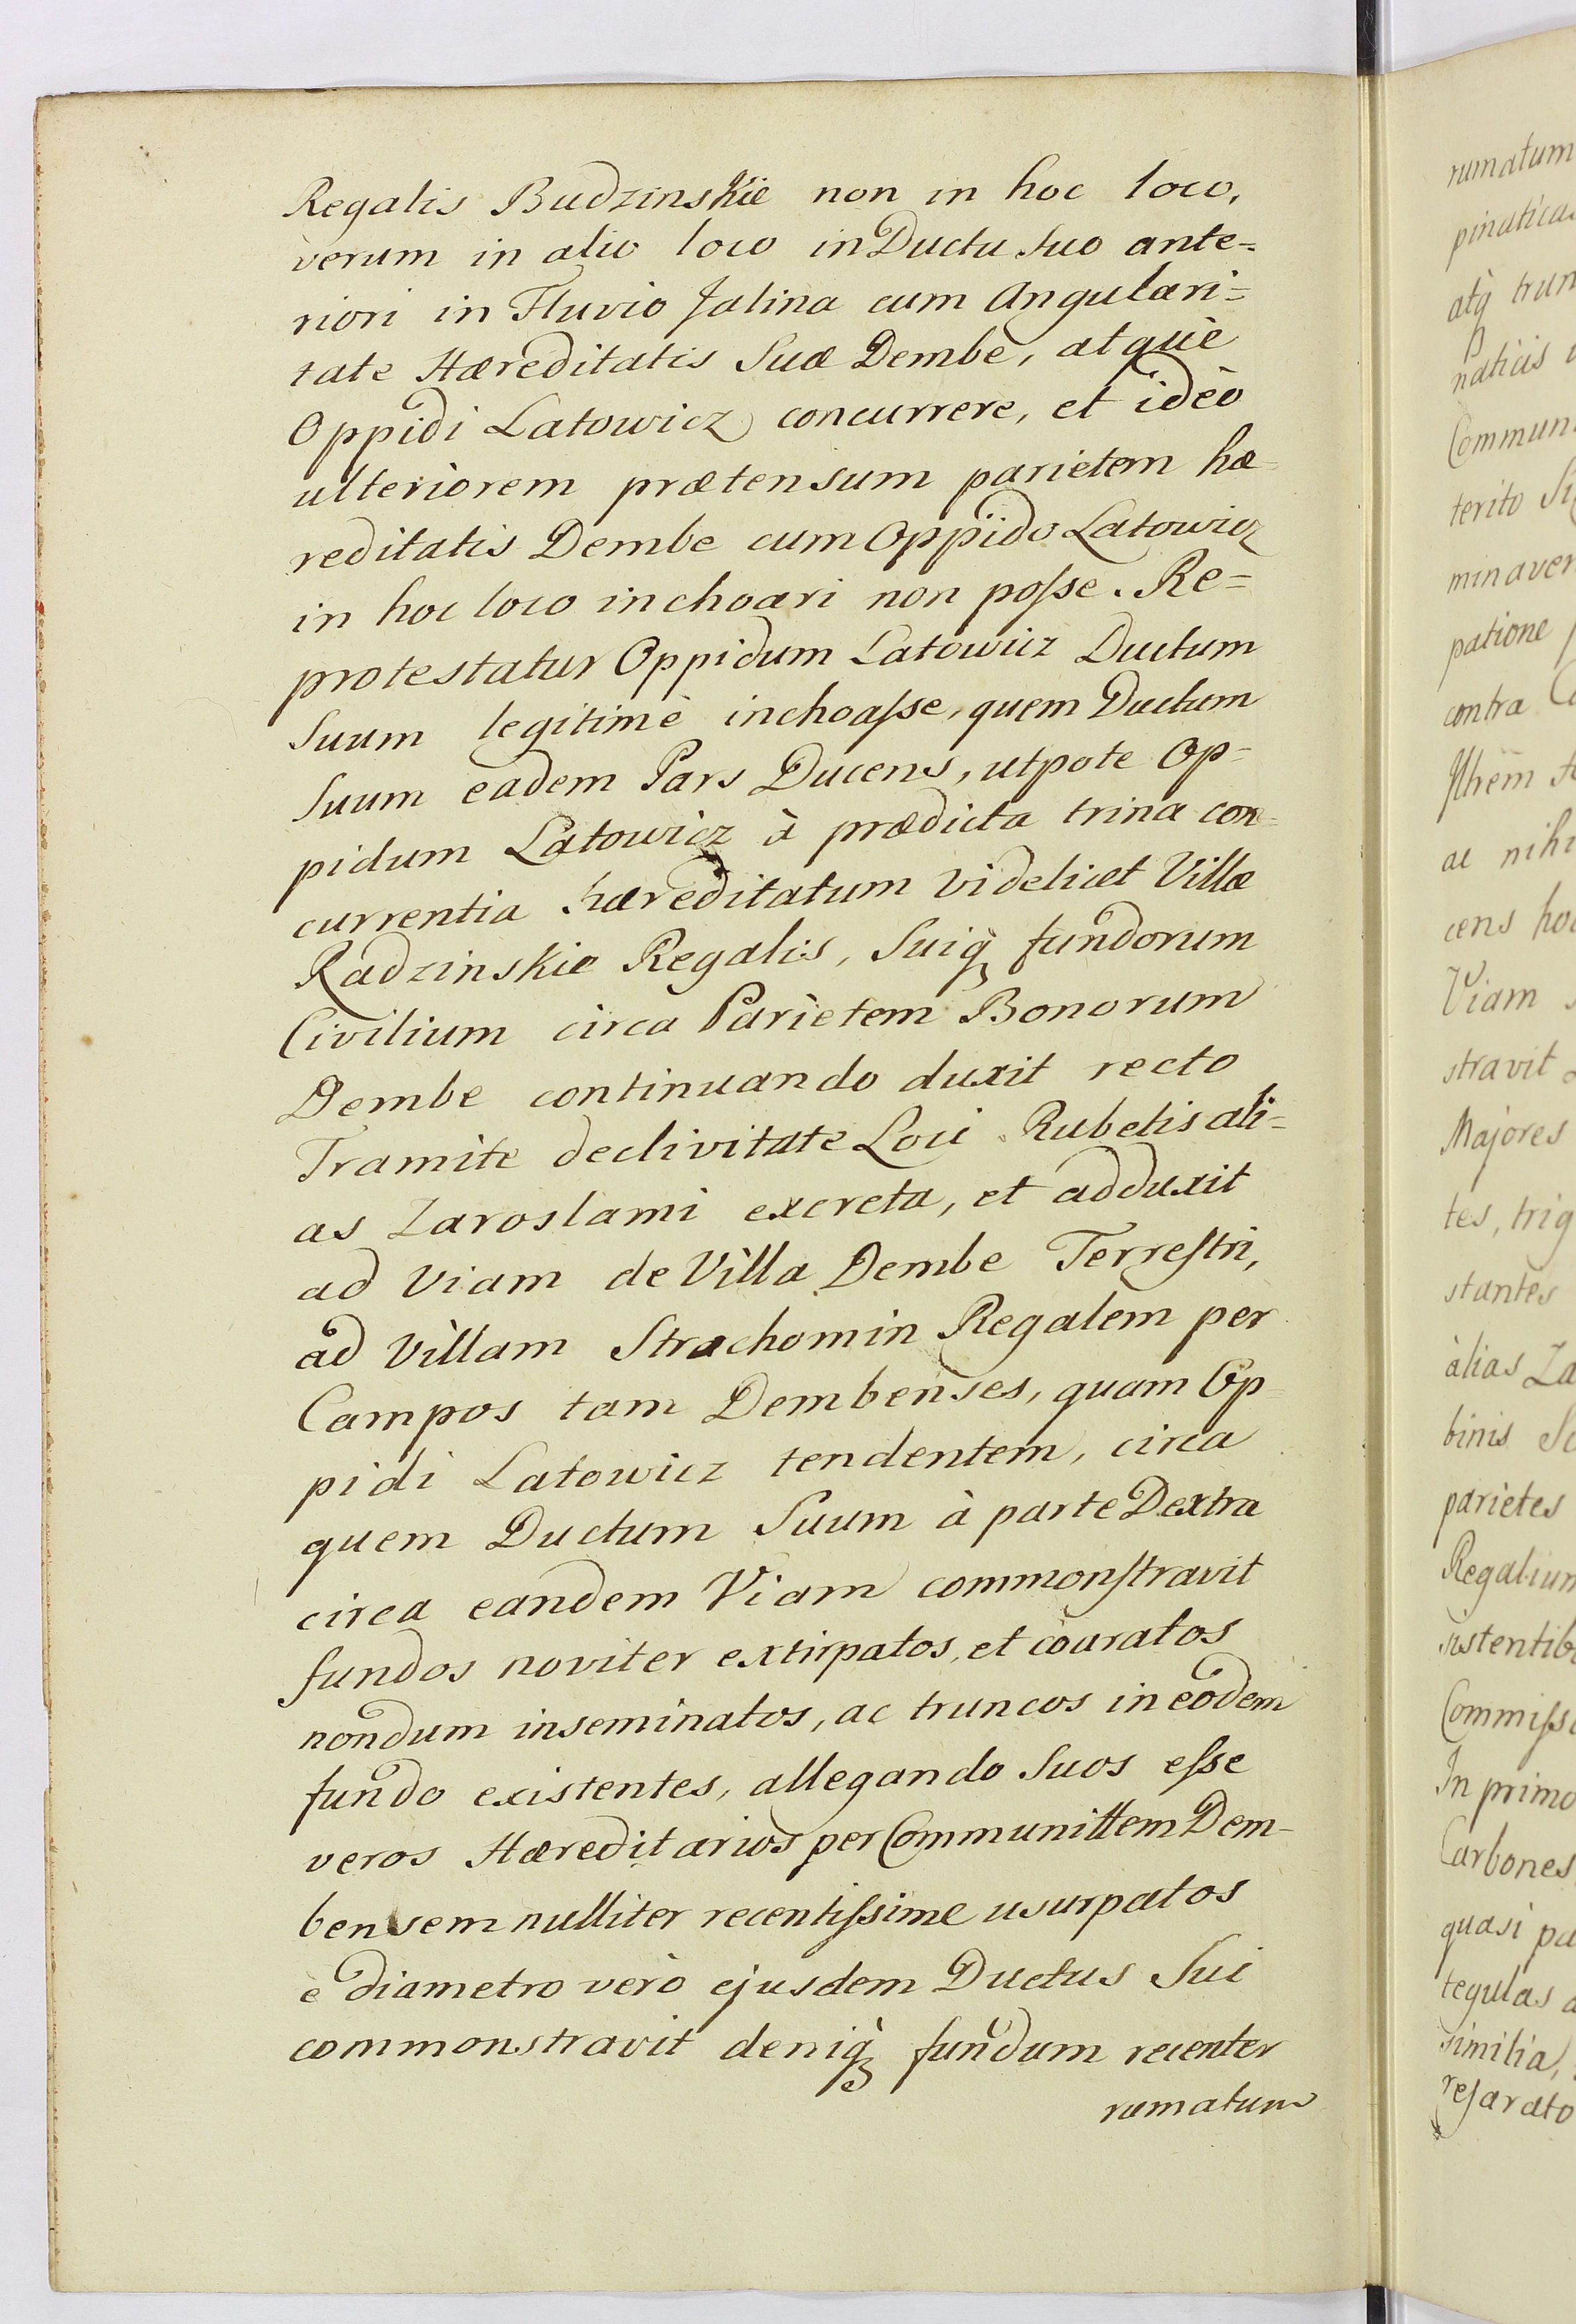 Regalis Budzinskie non in hoc loco,
verum in alio loco in Ductu Suo ante=
riori in Fluvio Jalina cum Angulari=
tate Hæreditatis Suæ Dembe, atquè
Oppidi Latowicz concurrere, et ideò
ulteriorem prætensum parietem hæ=
reditatis Dembe cum Oppido Latowicz
in hoc loco inchoari non posse. Re=
protestatur Oppidum Latowicz Ductum
Suum legitimè inchoasse, quem Ductum
Suum eadem Pars Ducens, utpote Op=
pidum Latowicz à prædicta trina con=
currentia hæreditatum videlicet Villæ
Radzinskie Regalis, Suiq fundorum
Civilium circa Parietem Bonorum
Dembe continuando duxit recto
Tramite declivitate Loci Rubetis ali=
as Zaroslami excreta, et adduxit
ad Viam de Villa Dembe Terrestri,
ad Villam Strachomin Regalem per
Campos tam Dembenses, quam Op=
pidi Latowicz tendentem, circa
quem Ductum Suum à parte Dextra
circa eandem Viam commonstravit
fundos noviter extirpatos, et coaratos
nondum inseminatos, ac truncos in eodem
fundo existentes, allegando Suos esse
veros Hæreditarios per Communittem Dem=
bensem nulliter recentissime usurpatos
è diametro verò ejusdem Ductus Sui
commonstravit deniq fundum recenter
rumatum
rumatum
pinatica
atq trun
naticis
Commun
terito
minaver
patione
contra
ac nihi
cens hoc
Viam
stravit
Majores
tes, trig
stantes
àlias Za
binis
parietes
Regalium
sistentib
Commisso
In primo
Carbones
quasi pa
tegulas a
similia,
resarato